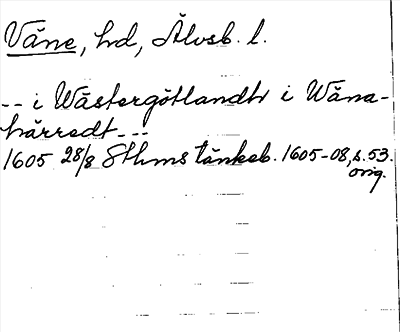 Väne, hd, Älvsb. l.
-- i Wästergötlandh i Wäna-
härredt---
1605 28/8 Sthms tänkeb. 1605-08, s. 53.
orig.